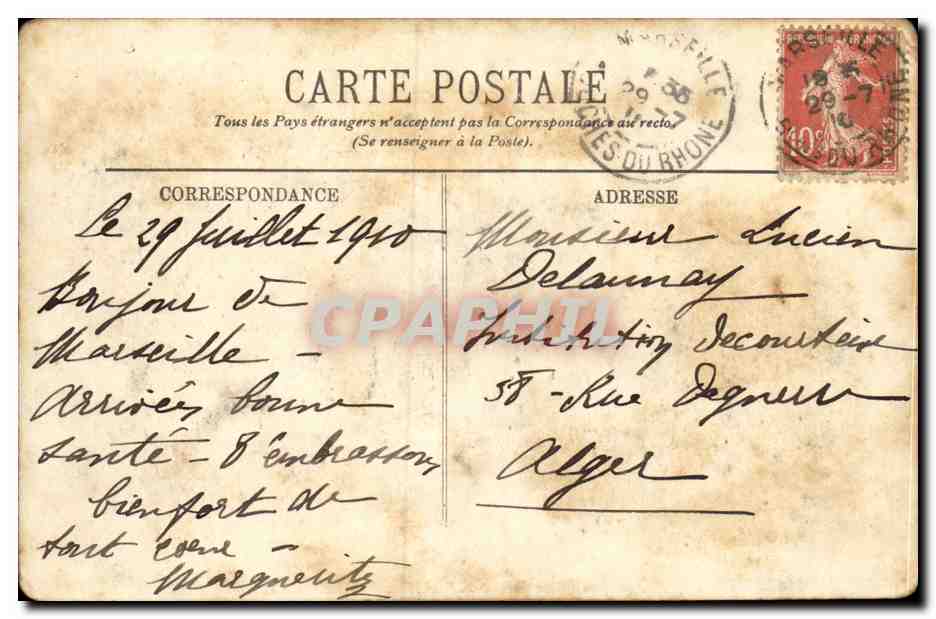 CARTE POSTALE
Tous les Pays étrangers n'acceptent pas la Correspondance au recto
(Se renseigner à la Poste).
MARSEILLE
BOUCHES-DU-RHONE
MARSEILLE
29 -7
10c
CORRESPONDANCE
Le 29 Juillet 1910
Bonjour de
Marseille -
Arrivées bonne
santé - T'embrassons
bien fort de
tout coeur -
Marguerite
ADRESSE
Monsieur Lucien
Delaunay
Institution
58 - Rue
Alger
CPAPHIL